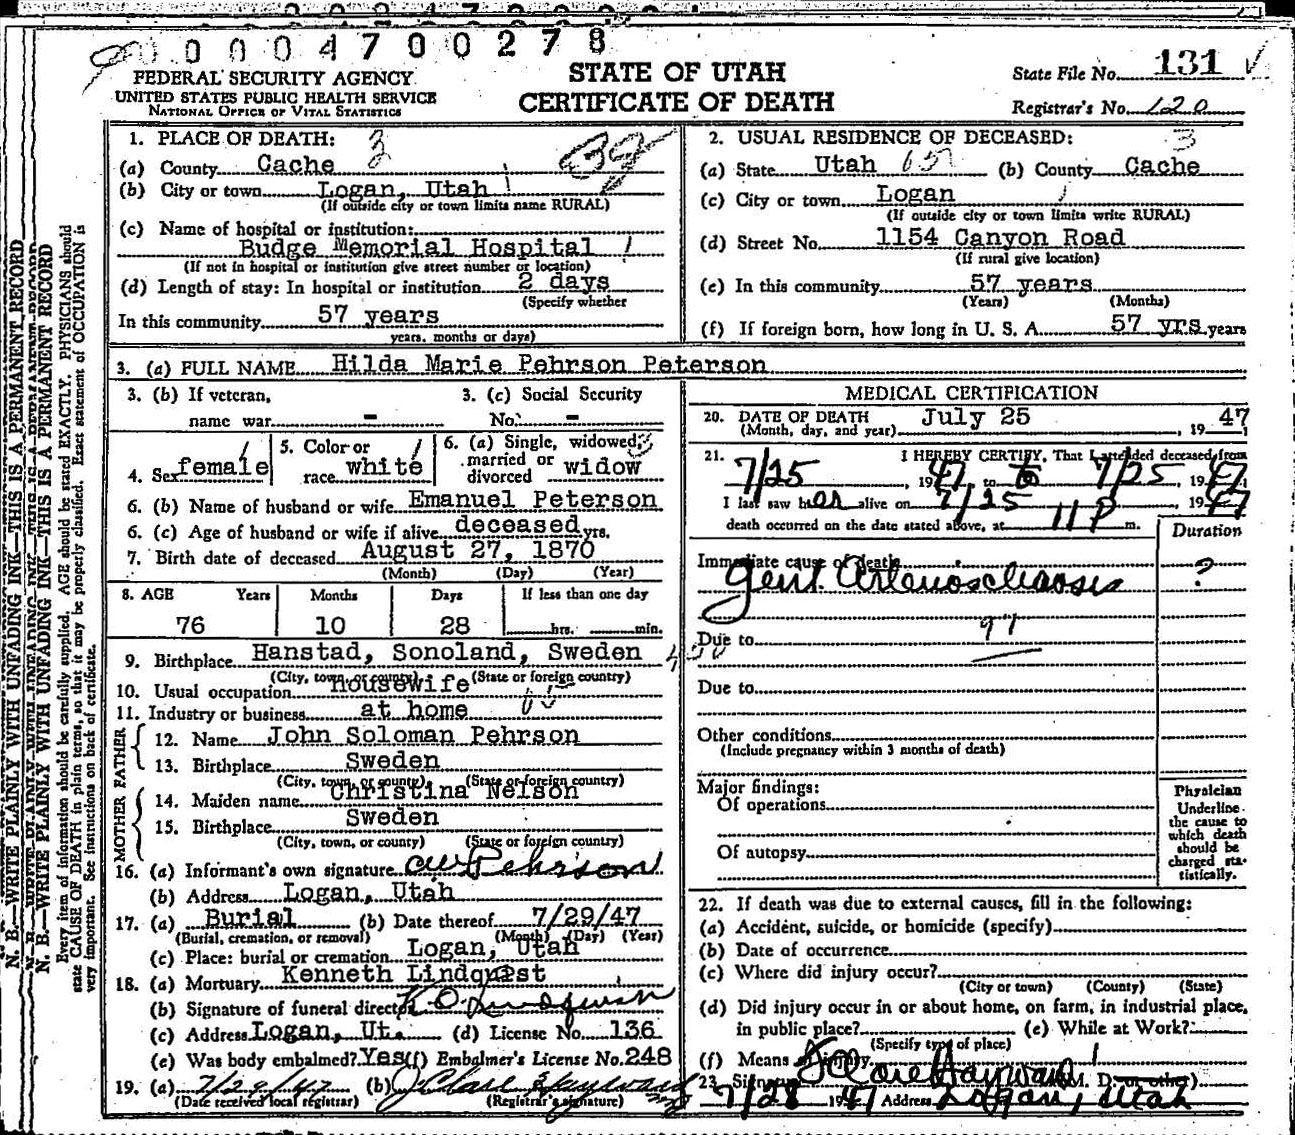 0 0 0 4 7 0 0 2 7 8
FEDERAL SECURITY AGENCY
UNITED STATES PUBLIC HEALTH SERVICE
NATIONAL OFFICE OF VITAL STATISTICS
STATE OF UTAH
CERTIFICATE OF DEATH
State File No. 131
Registrar's No. 120
1. PLACE OF DEATH: 3
(a) County Cache
(b) City or town Logan, Utah
(If outside city or town limits name RURAL)
(c) Name of hospital or institution:
Budge Memorial Hospital
(If not in hospital or institution give street number or location)
(d) Length of stay: In hospital or institution 2 days
(Specify whether
In this community 57 years
years, months or days)
2. USUAL RESIDENCE OF DECEASED: 3
(a) State Utah 65 (b) County Cache
(c) City or town Logan
(If outside city or town limits write RURAL)
(d) Street No. 1154 Canyon Road
(If rural give location)
(e) In this community 57 years
(Years) (Months)
(f) If foreign born, how long in U. S. A. 57 yrs years
3. (a) FULL NAME Hilda Marie Pehrson Peterson
3. (b) If veteran,
name war -
3. (c) Social Security
No. -
4. Sex female
5. Color or
race white
6. (a) Single, widowed, 3
married or
divorced widow
6. (b) Name of husband or wife Emanuel Peterson
6. (c) Age of husband or wife if alive deceased yrs.
7. Birth date of deceased August 27, 1870
(Month) (Day) (Year)
8. AGE Years Months Days If less than one day
76 10 28 hrs. min.
9. Birthplace Hanstad, Sonoland, Sweden
(City, town, or county) (State or foreign country)
10. Usual occupation housewife
11. Industry or business at home
FATHER
12. Name John Soloman Pehrson
13. Birthplace Sweden
(City, town, or county) (State or foreign country)
MOTHER
14. Maiden name Christina Nelson
15. Birthplace Sweden
(City, town, or county) (State or foreign country)
16. (a) Informant's own signature Pehrson
(b) Address Logan, Utah
17. (a) Burial (b) Date thereof 7/29/47
(Burial, cremation, or removal) (Month) (Day) (Year)
(c) Place: burial or cremation Logan, Utah
18. (a) Mortuary Kenneth Lindquist
(b) Signature of funeral director K O Lindquist
(c) Address Logan, Ut. (d) License No. 136
(e) Was body embalmed? Yes (f) Embalmer's License No. 248
19. (a) 7/29/47 (b) J Clare Hayward
(Date received local registrar) (Registrar's signature)
MEDICAL CERTIFICATION
20. DATE OF DEATH July 25, 1947
(Month, day, and year)
21. I HEREBY CERTIFY, That I attended deceased from
7/25, 1947, to 7/25, 1947
I last saw her alive on 7/25, 1947
death occurred on the date stated above, at 11 P m.
Duration
Immediate cause of death
Genl. Arteriosclerosis ?
97
Due to
Due to
Other conditions
(Include pregnancy within 3 months of death)
Major findings:
Of operations
Of autopsy
Physician
Underline
the cause to
which death
should be
charged sta-
tistically.
22. If death was due to external causes, fill in the following:
(a) Accident, suicide, or homicide (specify)
(b) Date of occurrence
(c) Where did injury occur?
(City or town) (County) (State)
(d) Did injury occur in or about home, on farm, in industrial place,
in public place? (e) While at Work?
(Specify type of place)
(f) Means of injury
23. Signature J Clare Hayward (M. D. or other)
7/28 1947 Address Logan, Utah
N. B.—WRITE PLAINLY WITH UNFADING INK—THIS IS A PERMANENT RECORD
Every item of information should be carefully supplied. AGE should be stated EXACTLY. PHYSICIANS should
state CAUSE OF DEATH in plain terms, so that it may be properly classified. Exact statement of OCCUPATION is
very important. See instructions on back of certificate.